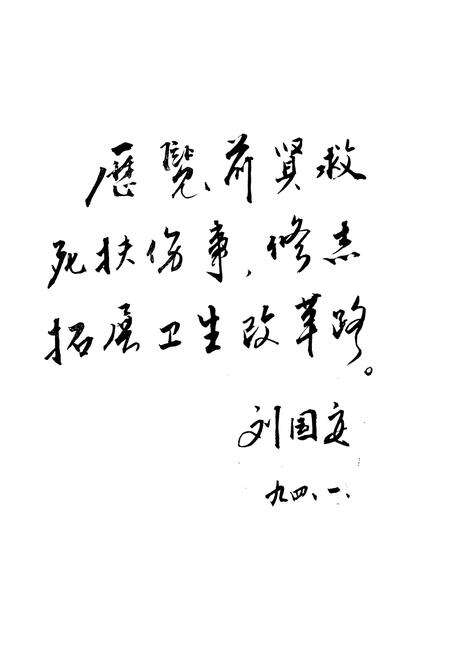 歷覽前賢救
死扶伤事，修志
拓展卫生改革路。
刘国安
九四、一、